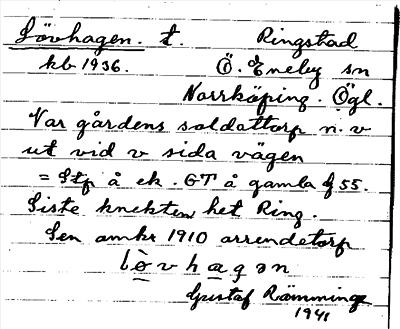 Lövhagen. t. Ringstad
kb 1936. Ö. Eneby sn
Norrköping. Ögl.
Var gårdens soldattorp n. v
ut vid v sida vägen
= Stp å ek. GT å gamla f 55.
Siste knekten het Ring.
Sen omkr 1910 arrendetorp
lòvhagən
Gustaf Rämminge
1941